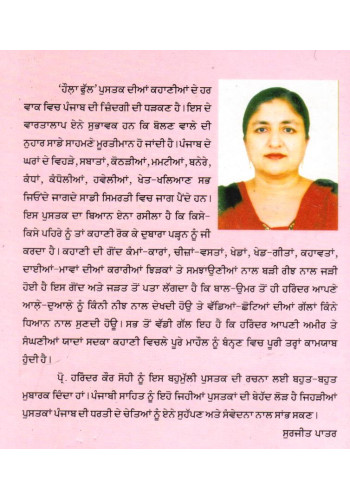 'ਹੌਲਾ ਫੁੱਲ' ਪੁਸਤਕ ਦੀਆਂ ਕਹਾਣੀਆਂ ਦੇ ਹਰ
ਵਾਕ ਵਿਚ ਪੰਜਾਬ ਦੀ ਜ਼ਿੰਦਗੀ ਦੀ ਧੜਕਣ ਹੈ। ਇਸ ਦੇ
ਵਾਰਤਾਲਾਪ ਏਨੇ ਸੁਭਾਵਕ ਹਨ ਕਿ ਬੋਲਣ ਵਾਲੇ ਦੀ
ਨੁਹਾਰ ਸਾਡੇ ਸਾਹਮਣੇ ਮੂਰਤੀਮਾਨ ਹੋ ਜਾਂਦੀ ਹੈ। ਪੰਜਾਬ ਦੇ
ਘਰਾਂ ਦੇ ਵਿਹੜੇ, ਸਬਾਤਾਂ, ਕੰਠੜੀਆਂ, ਮਮਟੀਆਂ, ਬਨੇਰੇ,
ਕੰਧਾਂ, ਕੰਧੋਲੀਆਂ, ਹਵੇਲੀਆਂ, ਖੇਤ-ਖਲਿਆਣ ਸਭ
ਜਿਓਂਦੇ ਜਾਗਦੇ ਸਾਡੀ ਸਿਮਰਤੀ ਵਿਚ ਜਾਗ ਪੈਂਦੇ ਹਨ।
ਇਸ ਪੁਸਤਕ ਦਾ ਬਿਆਨ ਏਨਾ ਰਸੀਲਾ ਹੈ ਕਿ ਕਿਸੇ-
ਕਿਸੇ ਪਹਿਰੇ ਨੂੰ ਤਾਂ ਕਹਾਣੀ ਰੋਕ ਕੇ ਦੁਬਾਰਾ ਪੜ੍ਹਨ ਨੂੰ ਜੀ
ਕਰਦਾ ਹੈ। ਕਹਾਣੀ ਦੀ ਗੋਂਦ ਕੰਮਾਂ-ਕਾਰਾਂ, ਚੀਜ਼ਾਂ-ਵਸਤਾਂ, ਖੇਡਾਂ, ਖੇਡ-ਗੀਤਾਂ, ਕਹਾਵਤਾਂ,
ਦਾਈਆਂ-ਮਾਵਾਂ ਦੀਆਂ ਕਰਾਰੀਆਂ ਝਿੜਕਾਂ ਤੇ ਸਮਝਾਉਣੀਆਂ ਨਾਲ ਬੜੀ ਗੀਝ ਨਾਲ ਜੜੀ
ਹੋਈ ਹੈ ਇਸ ਗੋਂਦ ਅਤੇ ਜੜਤ ਤੋਂ ਪਤਾ ਲੱਗਦਾ ਹੈ ਕਿ ਬਾਲ-ਉਮਰ ਤੋਂ ਹੀ ਹਰਿੰਦਰ ਆਪਣੇ
ਆਲੇ-ਦੁਆਲੇ ਨੂੰ ਕਿੰਨੀ ਨੀਝ ਨਾਲ ਦੇਖਦੀ ਹੋਊ ਤੇ ਵੱਡਿਆਂ-ਛੋਟਿਆਂ ਦੀਆਂ ਗੱਲਾਂ ਕਿੰਨੇ
ਧਿਆਨ ਨਾਲ ਸੁਣਦੀ ਹੋਊ। ਸਭ ਤੋਂ ਵੱਡੀ ਗੱਲ ਇਹ ਹੈ ਕਿ ਹਰਿੰਦਰ ਆਪਣੀ ਅਮੀਰ ਤੇ
ਸੰਘਣੀਆਂ ਯਾਦਾਂ ਸਦਕਾ ਕਹਾਣੀ ਵਿਚਲੇ ਪੂਰੇ ਮਾਹੌਲ ਨੂੰ ਬੰਨ੍ਹਣ ਵਿਚ ਪੂਰੀ ਤਰ੍ਹਾਂ ਕਾਮਯਾਬ
ਹੁੰਦੀ ਹੈ।
ਪ੍ਰੋ. ਹਰਿੰਦਰ ਕੌਰ ਸੋਹੀ ਨੂੰ ਇਸ ਬਹੁਮੁੱਲੀ ਪੁਸਤਕ ਦੀ ਰਚਨਾ ਲਈ ਬਹੁਤ-ਬਹੁਤ
ਮੁਬਾਰਕ ਦਿੰਦਾ ਹਾਂ। ਪੰਜਾਬੀ ਸਾਹਿਤ ਨੂੰ ਇਹੋ ਜਿਹੀਆਂ ਪੁਸਤਕਾਂ ਦੀ ਬੇਹੱਦ ਲੋੜ ਹੈ ਜਿਹੜੀਆਂ
ਪੁਸਤਕਾਂ ਪੰਜਾਬ ਦੀ ਧਰਤੀ ਦੇ ਚੇਤਿਆਂ ਨੂੰ ਏਨੇ ਸੁਹੱਪਣ ਅਤੇ ਸੰਵੇਦਨਾ ਨਾਲ ਸਾਂਭ ਸਕਣ।
ਸੁਰਜੀਤ ਪਾਤਰ